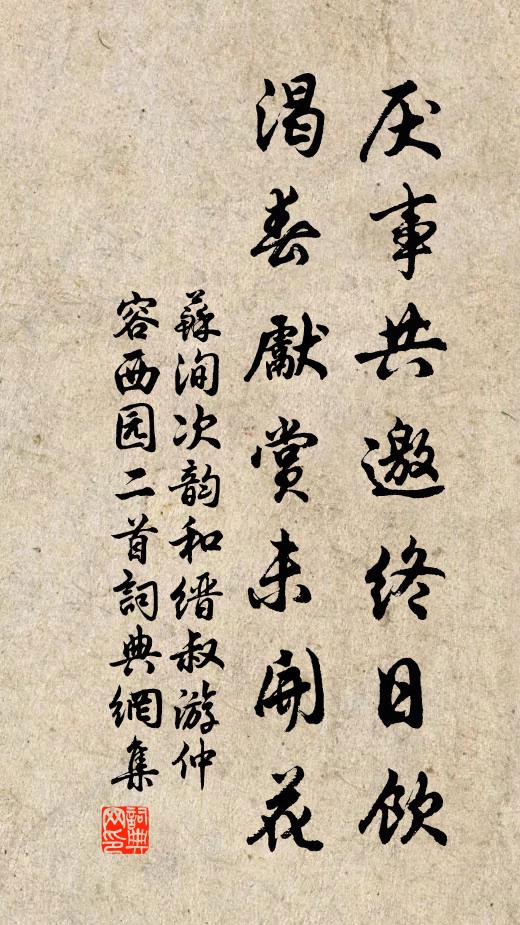 厌事共邀终日饮
渴春献赏未开花
苏洵次韵和缙叔游仲
容西园二首詞典網集
詞典
网印